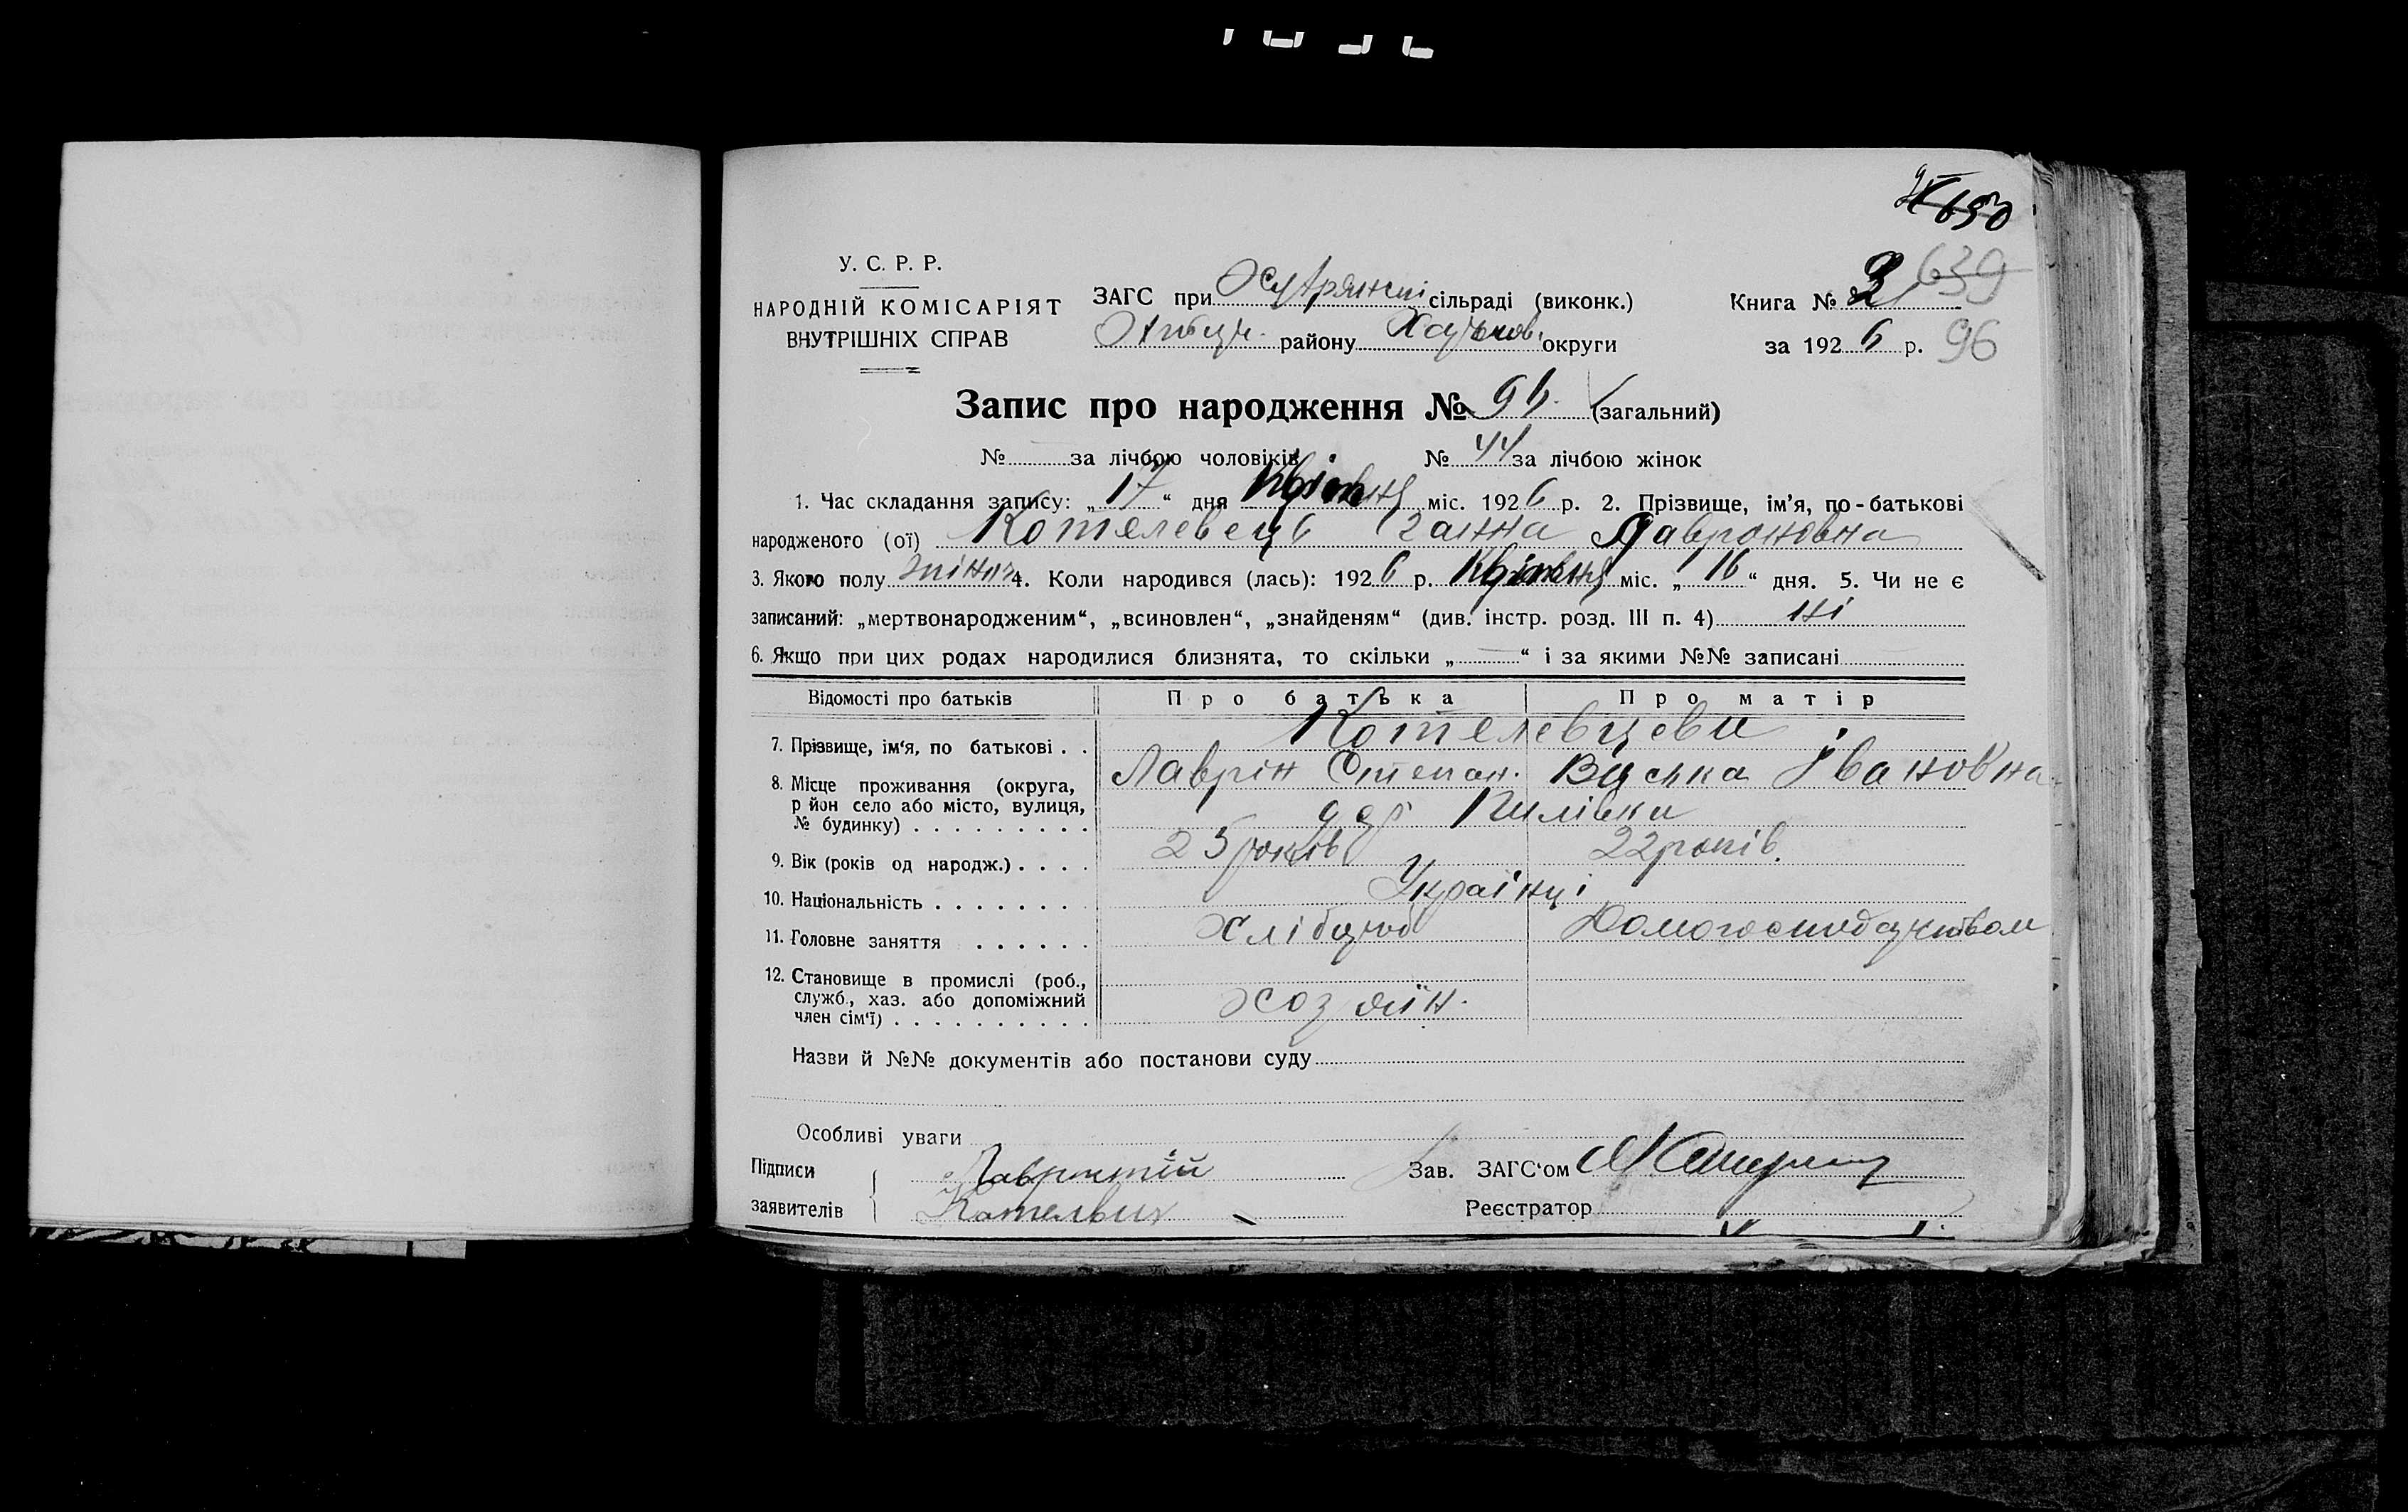 650
У. С. Р. Р.
НАРОДНІЙ КОМІСАРІЯТ
ВНУТРІШНІХ СПРАВ
ЗАГС при сільраді (виконк.)
району Харьков. округи
Книга № 3 639
за 1926 р. 96
Запис про народження № 96. (загальний)
№ за лічбою чоловіків № 44 за лічбою жінок
1. Час складання запису: „17“ дня Квітня міс. 1926 р. 2. Прізвище, ім’я, по-батькові
народженого (ої) Котелевець Ганна Лавроновна
3. Якого полу жіноч 4. Коли народився (лась): 1926 р. Квітня міс. „16“ дня. 5. Чи не є
записаний: „мертвонародженим“, „всиновлен“, „знайденям“ (див. інстр. розд. III п. 4) Ні
6. Якщо при цих родах народилися близнята, то скільки „—“ і за якими №№ записані
Відомості про батьків Про батька Про матір
7. Прізвище, ім‘я, по батькові . . Котелевцеви
8. Місце проживання (округа, Лаврін Степан. Васька Івановна
р йон село або місто, вулиця,
№ будинку) . . . . . . . . . дер Пилівки
9. Вік (років од народж.) . . . . 25 років 22 років.
10. Національність . . . . . . . Українці
11. Головне заняття . . . . . . Хлібороб Домогосподарством
12. Становище в промислі (роб.,
служб., хаз. або допоміжний
член сім‘ї) . . . . . . . . . . Хозяїн.
Назви й №№ документів або постанови суду
Особливі уваги
Підписи
заявителів
Зав. ЗАГС‘ом
Реєстратор